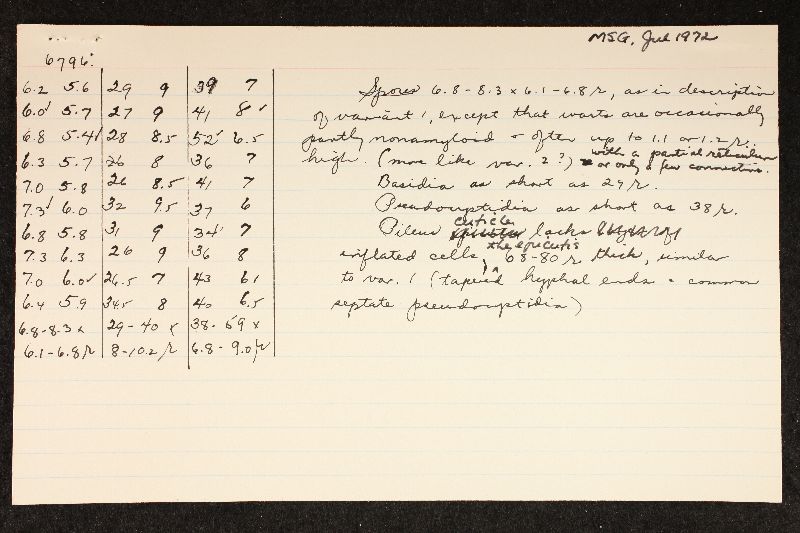 MSG, Jul 1972
6796:
6.2 5.6 29 9 39 7
6.0 5.7 27 9 41 8
6.8 5.4 28 8.5 52 6.5
6.3 5.7 26 8 36 7
7.0 5.8 26 8.5 41 7
7.3 6.0 32 9.5 37 6
6.8 5.8 31 9 34 7
7.3 6.3 26 9 36 8
7.0 6.0 26.5 7 43 61
6.4 5.9 34.5 8 40 6.5
6.8-8.3 x 29-40 x 38-59 x
6.1-6.8 μ 8-10.2 μ 6.8-9.0 μ
Spores 6.8-8.3 x 6.1-6.8 μ, as in description
of variant 1, except that warts are occasionally
partly nonamyloid & often up to 1.1 or 1.2 μ
high. (more like var. 2?) with a partial reticulum
or only a few connectives.
Basidia as short as 29 μ.
Pseudocystidia as short as 38 μ.
Pileus cuticle lacks
inflated cells, the epicutis 68-80 μ thick, similar
to var. 1 (tapered hyphal ends & common
septate pseudocystidia)